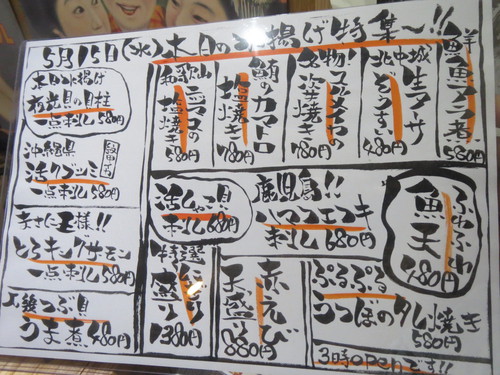 5月15日(水)本日の水揚げ特集〜!!
本日水揚げ
夜光貝の貝柱
一点刺し580円
沖縄県
活クブシミ
一点刺し580円
まさに王様!!
とろキングサーモン
一点刺し580円
つぶ貝
うま煮480円
和歌山
塩焼き
580円
鮪のカマトロ
塩焼き
780円
名物
姿焼き
780円
北中城
生アーサ
ぞうすい
580円
鮮魚アラ煮
580円
活しゃこ貝
刺し680円
鹿児島!!
ハマフエフキ
刺し680円
ふわふわ
魚天
480円
特選
にぎり
盛り
1380円
赤えび
天盛り
880円
ぷるぷる
うつぼのタレ焼き
580円
3時openです!!